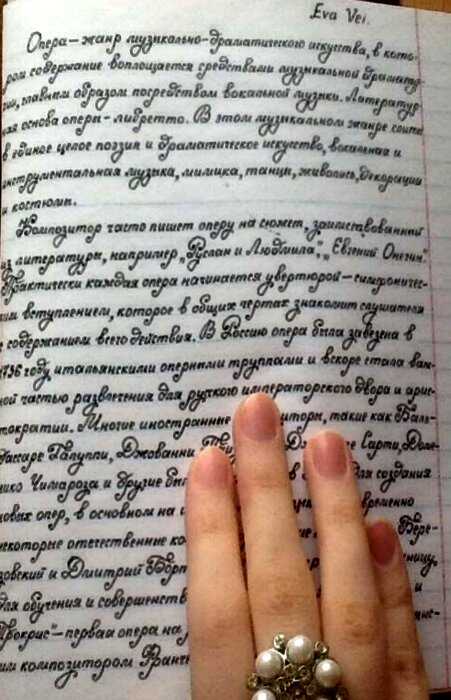 Eva Vei.
Опера – жанр музыкально-драматического искусства, в кото-
ром содержание воплощается средствами музыкальной драматур-
гии, главным образом посредством вокальной музыки. Литератур-
ная основа оперы – либретто. В этом музыкальном жанре слиты
в единое целое поэзия и драматическое искусство, вокальная и
инструментальная музыка, мимика, танцы, живопись, декорации
и костюмы.
Композитор часто пишет оперу на сюжет, заимствованный
из литературы, например „Руслан и Людмила", „Евгений Онегин".
Практически каждая опера начинается увертюрой – симфоничес-
ким вступлением, которое в общих чертах знакомит слушателя
с содержанием всего действия. В Россию опера была завезена в
1736 году итальянскими оперными труппами и вскоре стала важ-
ной частью развлечения для русского императорского двора и арис-
тократии. Многие иностранные такие как Баль-
тассаре Галуппи, Джованни Сарти, Доме-
нико Чимароза и другие для создания
новых опер, в основном на
некоторые отечественные Бере-
зовский и Дмитрий
для обучения и и
Прокрис" – первая опера на
им композитором